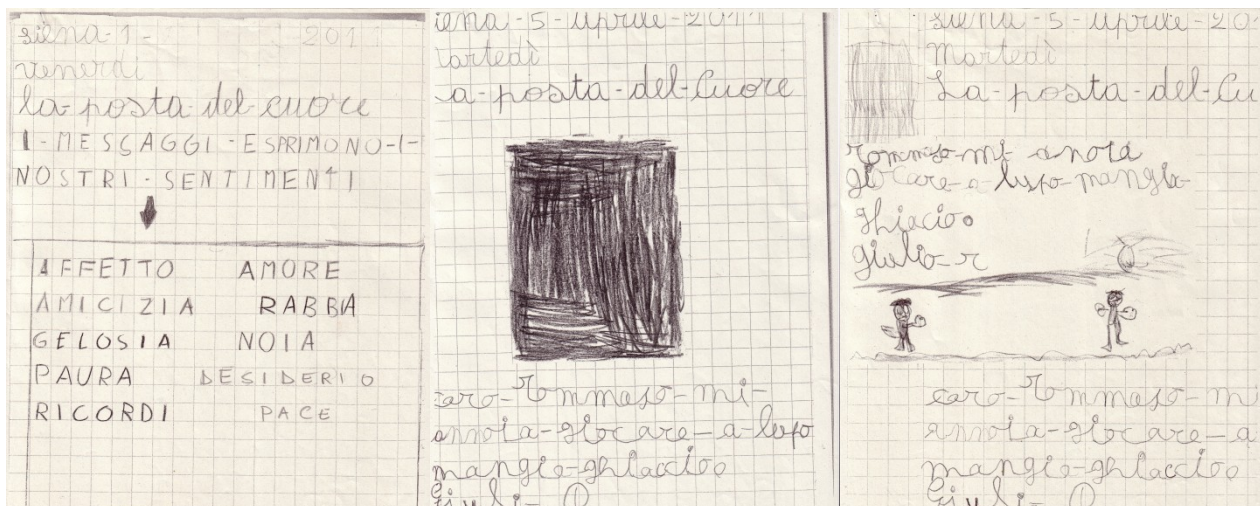 siena-1- 201
venerdì
la-posta-del-cuore
I-MESSAGGI-ESPRIMONO-I-
NOSTRI-SENTIMENTI
AFFETTO AMORE
AMICIZIA RABBIA
GELOSIA NOIA
PAURA DESIDERIO
RICORDI PACE
iena-5-aprile-2011
artedì
a-posta-del-cuore
caro-Tommaso-mi-
annoia-giocare-a-lupo
mangia-ghiaccio
Giuli-
siena-5-aprile-20
Martedì
La-posta-del-Cu
Tommaso-mi-anoia
giocare-a-lupo-mangia-
ghiacio
giulio-r
caro-Tommaso-m
annoia-giocare-a
mangia-ghiaccio
Giuli-